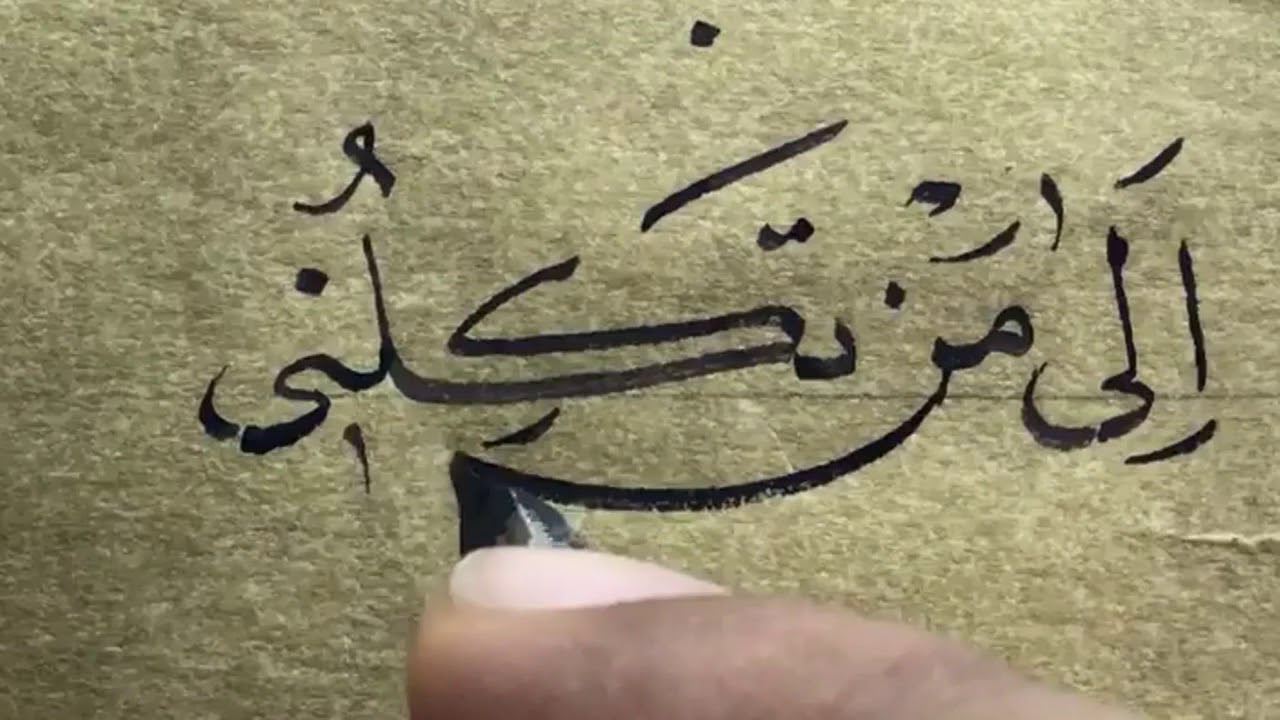 اِلَى مَنْ تَكِلُنِي